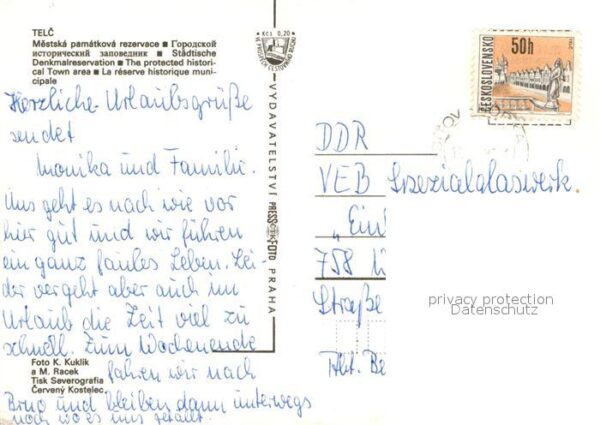 TELČ
Městská památková rezervace ■ Городской
исторический заповедник ■ Städtische
Denkmalreservation ■ The protected histori-
cal Town area ■ La réserve historique muni-
cipale
Kčs 0,20
VE PROSPĚCH CESTOVNÍHO RUCHU
Herzliche Urlaubsgrüße
sendet
Monika und Familie.
Uns geht es nach wie vor
hier gut und wir führen
ein ganz faules Leben. Lei-
der vergeht aber auch im
Urlaub die Zeit viel zu
schnell. Zum Wochenende
fahren wir nach
Brno und bleiben dann unterwegs
noch wo es uns gefällt.
Foto K. Kuklík
a M. Racek
Tisk Severografia
Červený Kostelec
VYDAVATELSTVÍ PRESSFOTO PRAHA
50h
ČESKOSLOVENSKO
DDR
VEB Spezialglaswerk.
„Ein
758
Straße
Abt. Be
privacy protection
Datenschutz